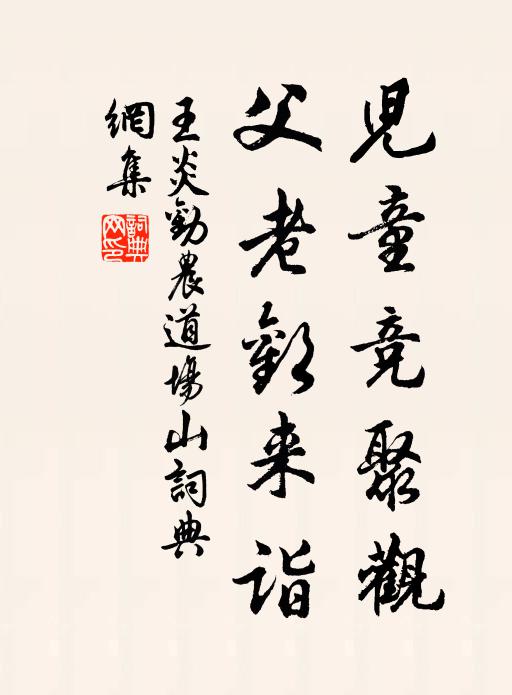 児童竞聚觀
父老歡来詣
王炎勸農道場山詞典
網集
詞典网印